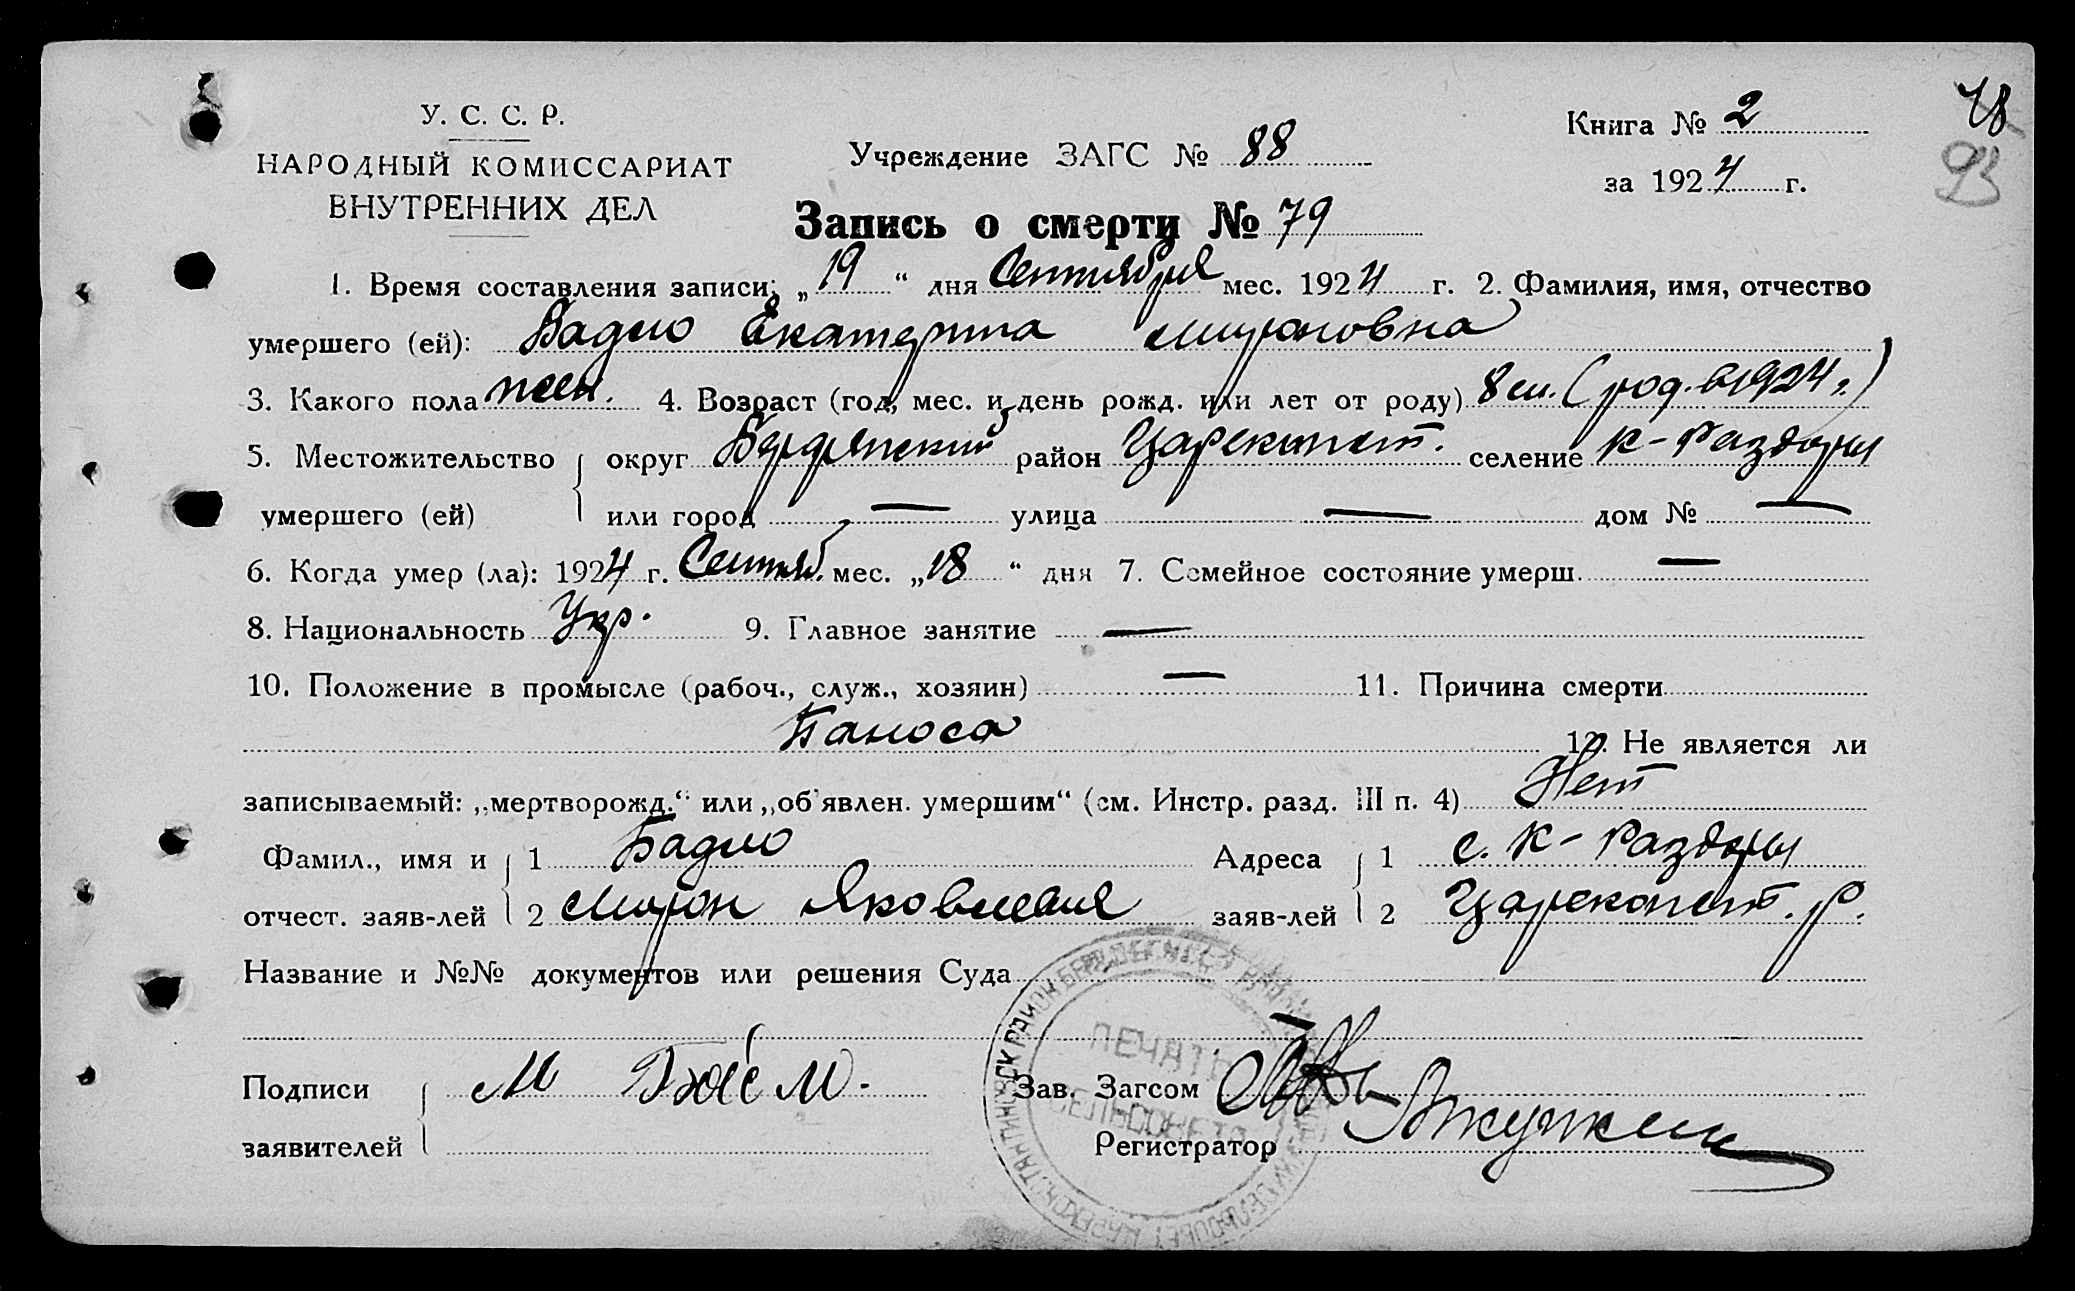 У. С. С. Р.
НАРОДНЫЙ КОМИССАРИАТ
ВНУТРЕННИХ ДЕЛ
Учреждение ЗАГС № 88
Книга № 2
за 1924 г.
78
93
Запись о смерти № 79
1. Время составления записи: „19“ дня Сентября мес. 1924 г. 2. Фамилия, имя, отчество
умершего (ей): Бадло Екатерина Мироновна
3. Какого пола жен. 4. Возраст (год, мес. и день рожд. или лет от роду) 8 м. (род. в 1924 г.)
5. Местожительство округ Бердянский район Цареконст. селение К-Раздоры
умершего (ей) или город — улица — дом № —
6. Когда умер (ла): 1924 г. Сентяб. мес. „18“ дня 7. Семейное состояние умерш. —
8. Национальность Укр. 9. Главное занятие —
10. Положение в промысле (рабоч., служ., хозяин) — 11. Причина смерти
12. Не является ли
записываемый: „мертворожд.“ или „об'явлен. умершим“ (см. Инстр. разд. III п. 4) Нет
Фамил., имя и 1 Бадло Адреса 1 с. К-Раздоры
отчест. заяв-лей 2 Мирон Яковлевич заяв-лей 2 Цареконст. р.
Название и №№ документов или решения Суда
ПЕЧАТЬ
СЕЛЬСОВЕТА
Подписи М Зав. Загсом
заявителей Регистратор